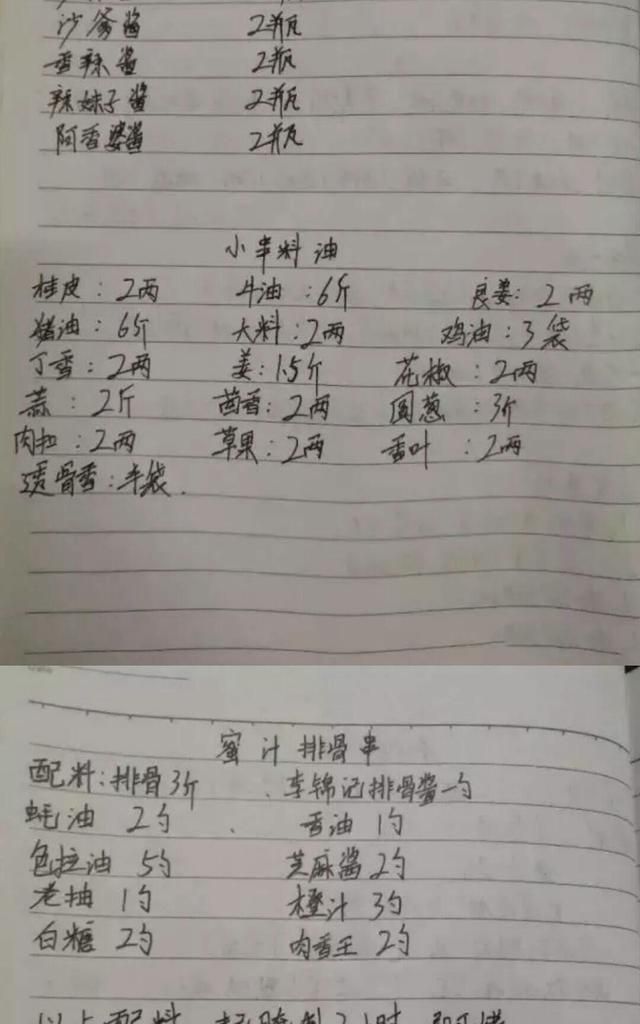 沙爹酱 2瓶
香辣酱 2瓶
辣妹子酱 2瓶
阿香婆酱 2瓶
小串料油
桂皮：2两 牛油：6斤 良姜：2两
猪油：6斤 大料：2两 鸡油：3袋
丁香：2两 姜：1.5斤 花椒：2两
蒜：2斤 茴香：2两 圆葱：3斤
肉扣：2两 草果：2两 香叶：2两
透骨香：半袋.
蜜汁排骨串
配料：排骨3斤 李锦记排骨酱一勺
蚝油 2勺 香油 1勺
色拉油 5勺 芝麻酱 2勺
老抽 1勺 橙汁 3勺
白糖 2勺 肉香王 2勺
以上配料